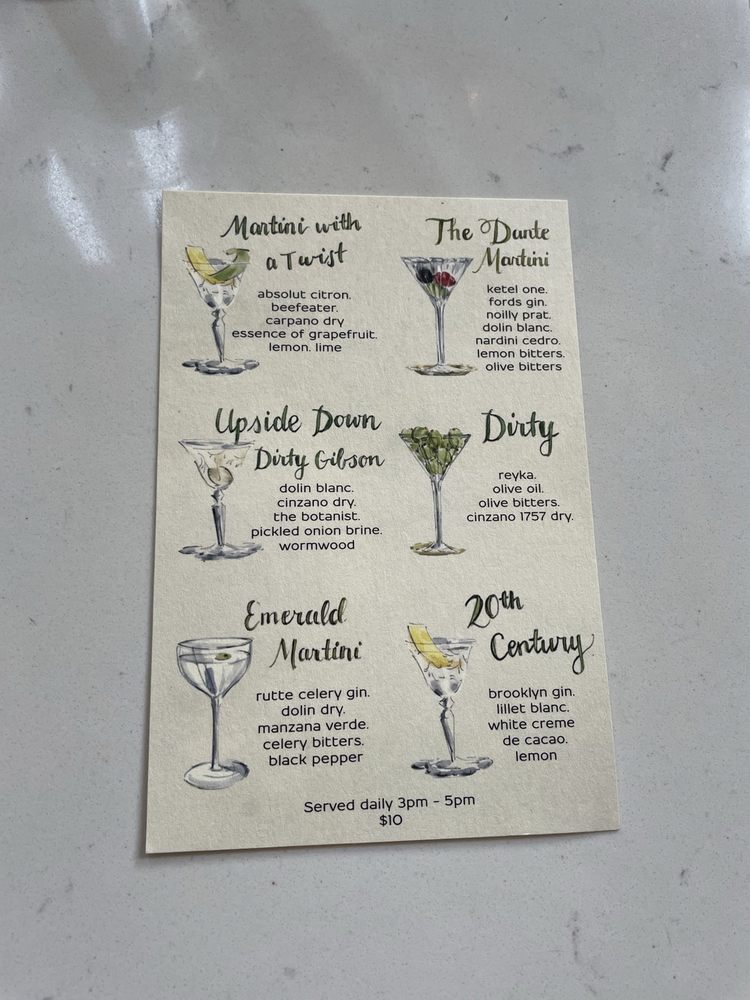 Martini with
a Twist
absolut citron.
beefeater.
carpano dry
essence of grapefruit.
lemon. lime
The Dante
Martini
ketel one.
fords gin.
noilly prat.
dolin blanc.
nardini cedro.
lemon bitters.
olive bitters
Upside Down
Dirty Gibson
dolin blanc.
cinzano dry.
the botanist.
pickled onion brine.
wormwood
Dirty
reyka.
olive oil.
olive bitters.
cinzano 1757 dry.
Emerald
Martini
rutte celery gin.
dolin dry.
manzana verde.
celery bitters.
black pepper
20th
Century
brooklyn gin.
lillet blanc.
white creme
de cacao.
lemon
Served daily 3pm - 5pm
$10